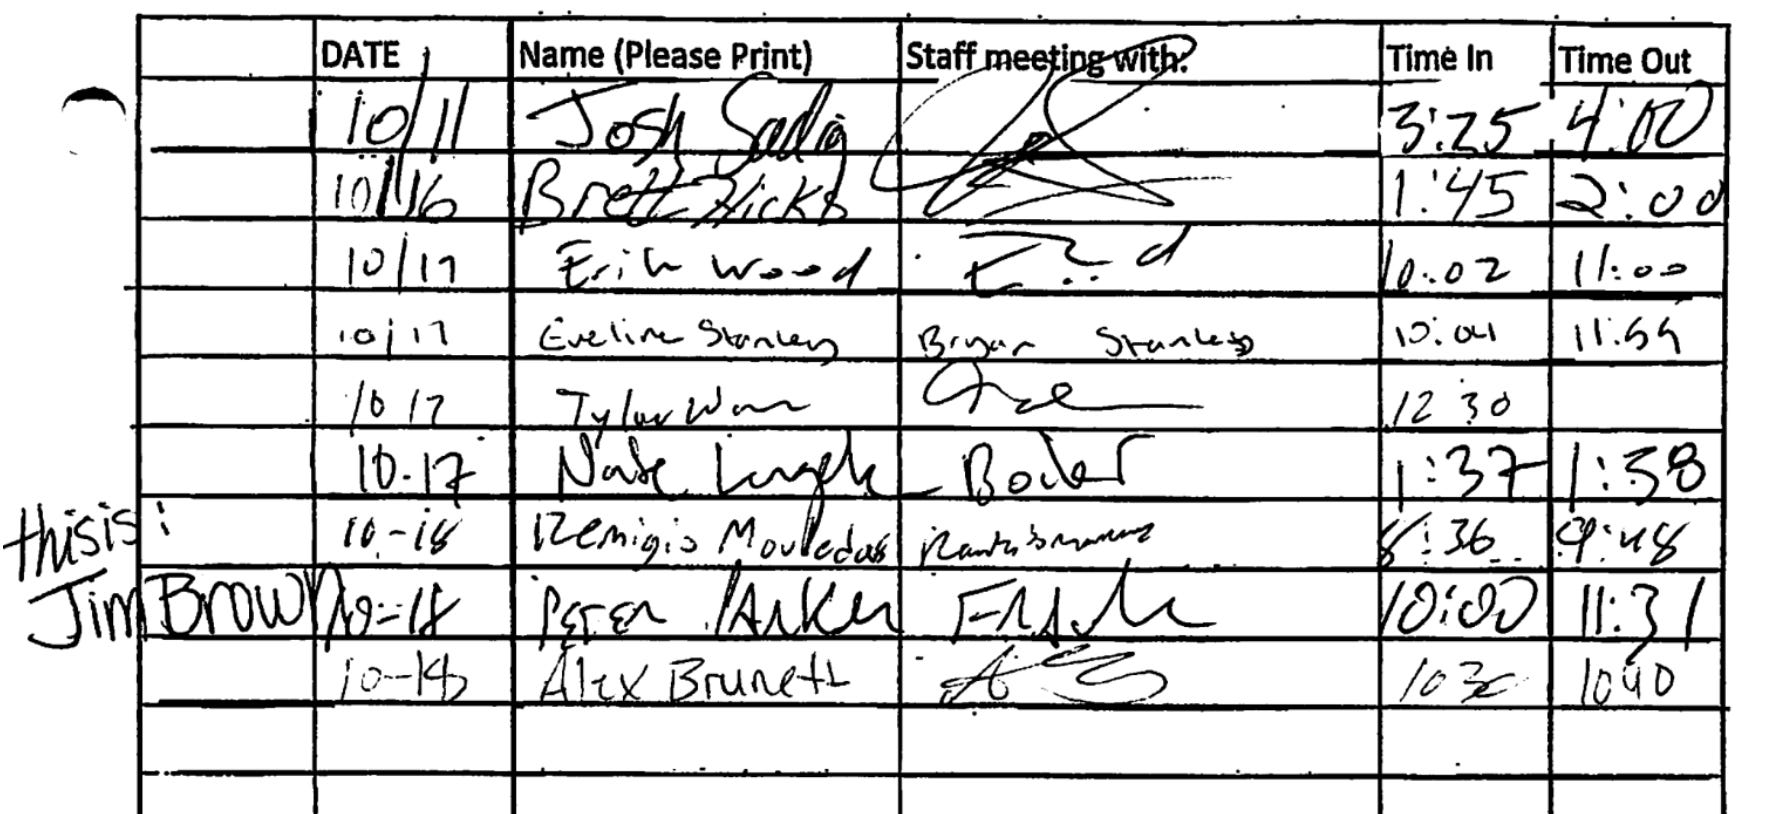 DATE Name (Please Print) Staff meeting with: Time In Time Out
10/11 Josh 3:25 4:00
10/16 Brett Hicks 1:45 2:00
10/17 Erik Wood 10:02 11:00
10/17 Eveline Stanley Bryan Stanley 10:04 11:59
10 17 Tyler 12 30
10-17 Nate 1:37 1:38
this is:
10-18 Remigio 8:36 9:48
Jim Brown 10-18 Peter Parker 10:00 11:31
10-18 Alex Brunett 1030 1040